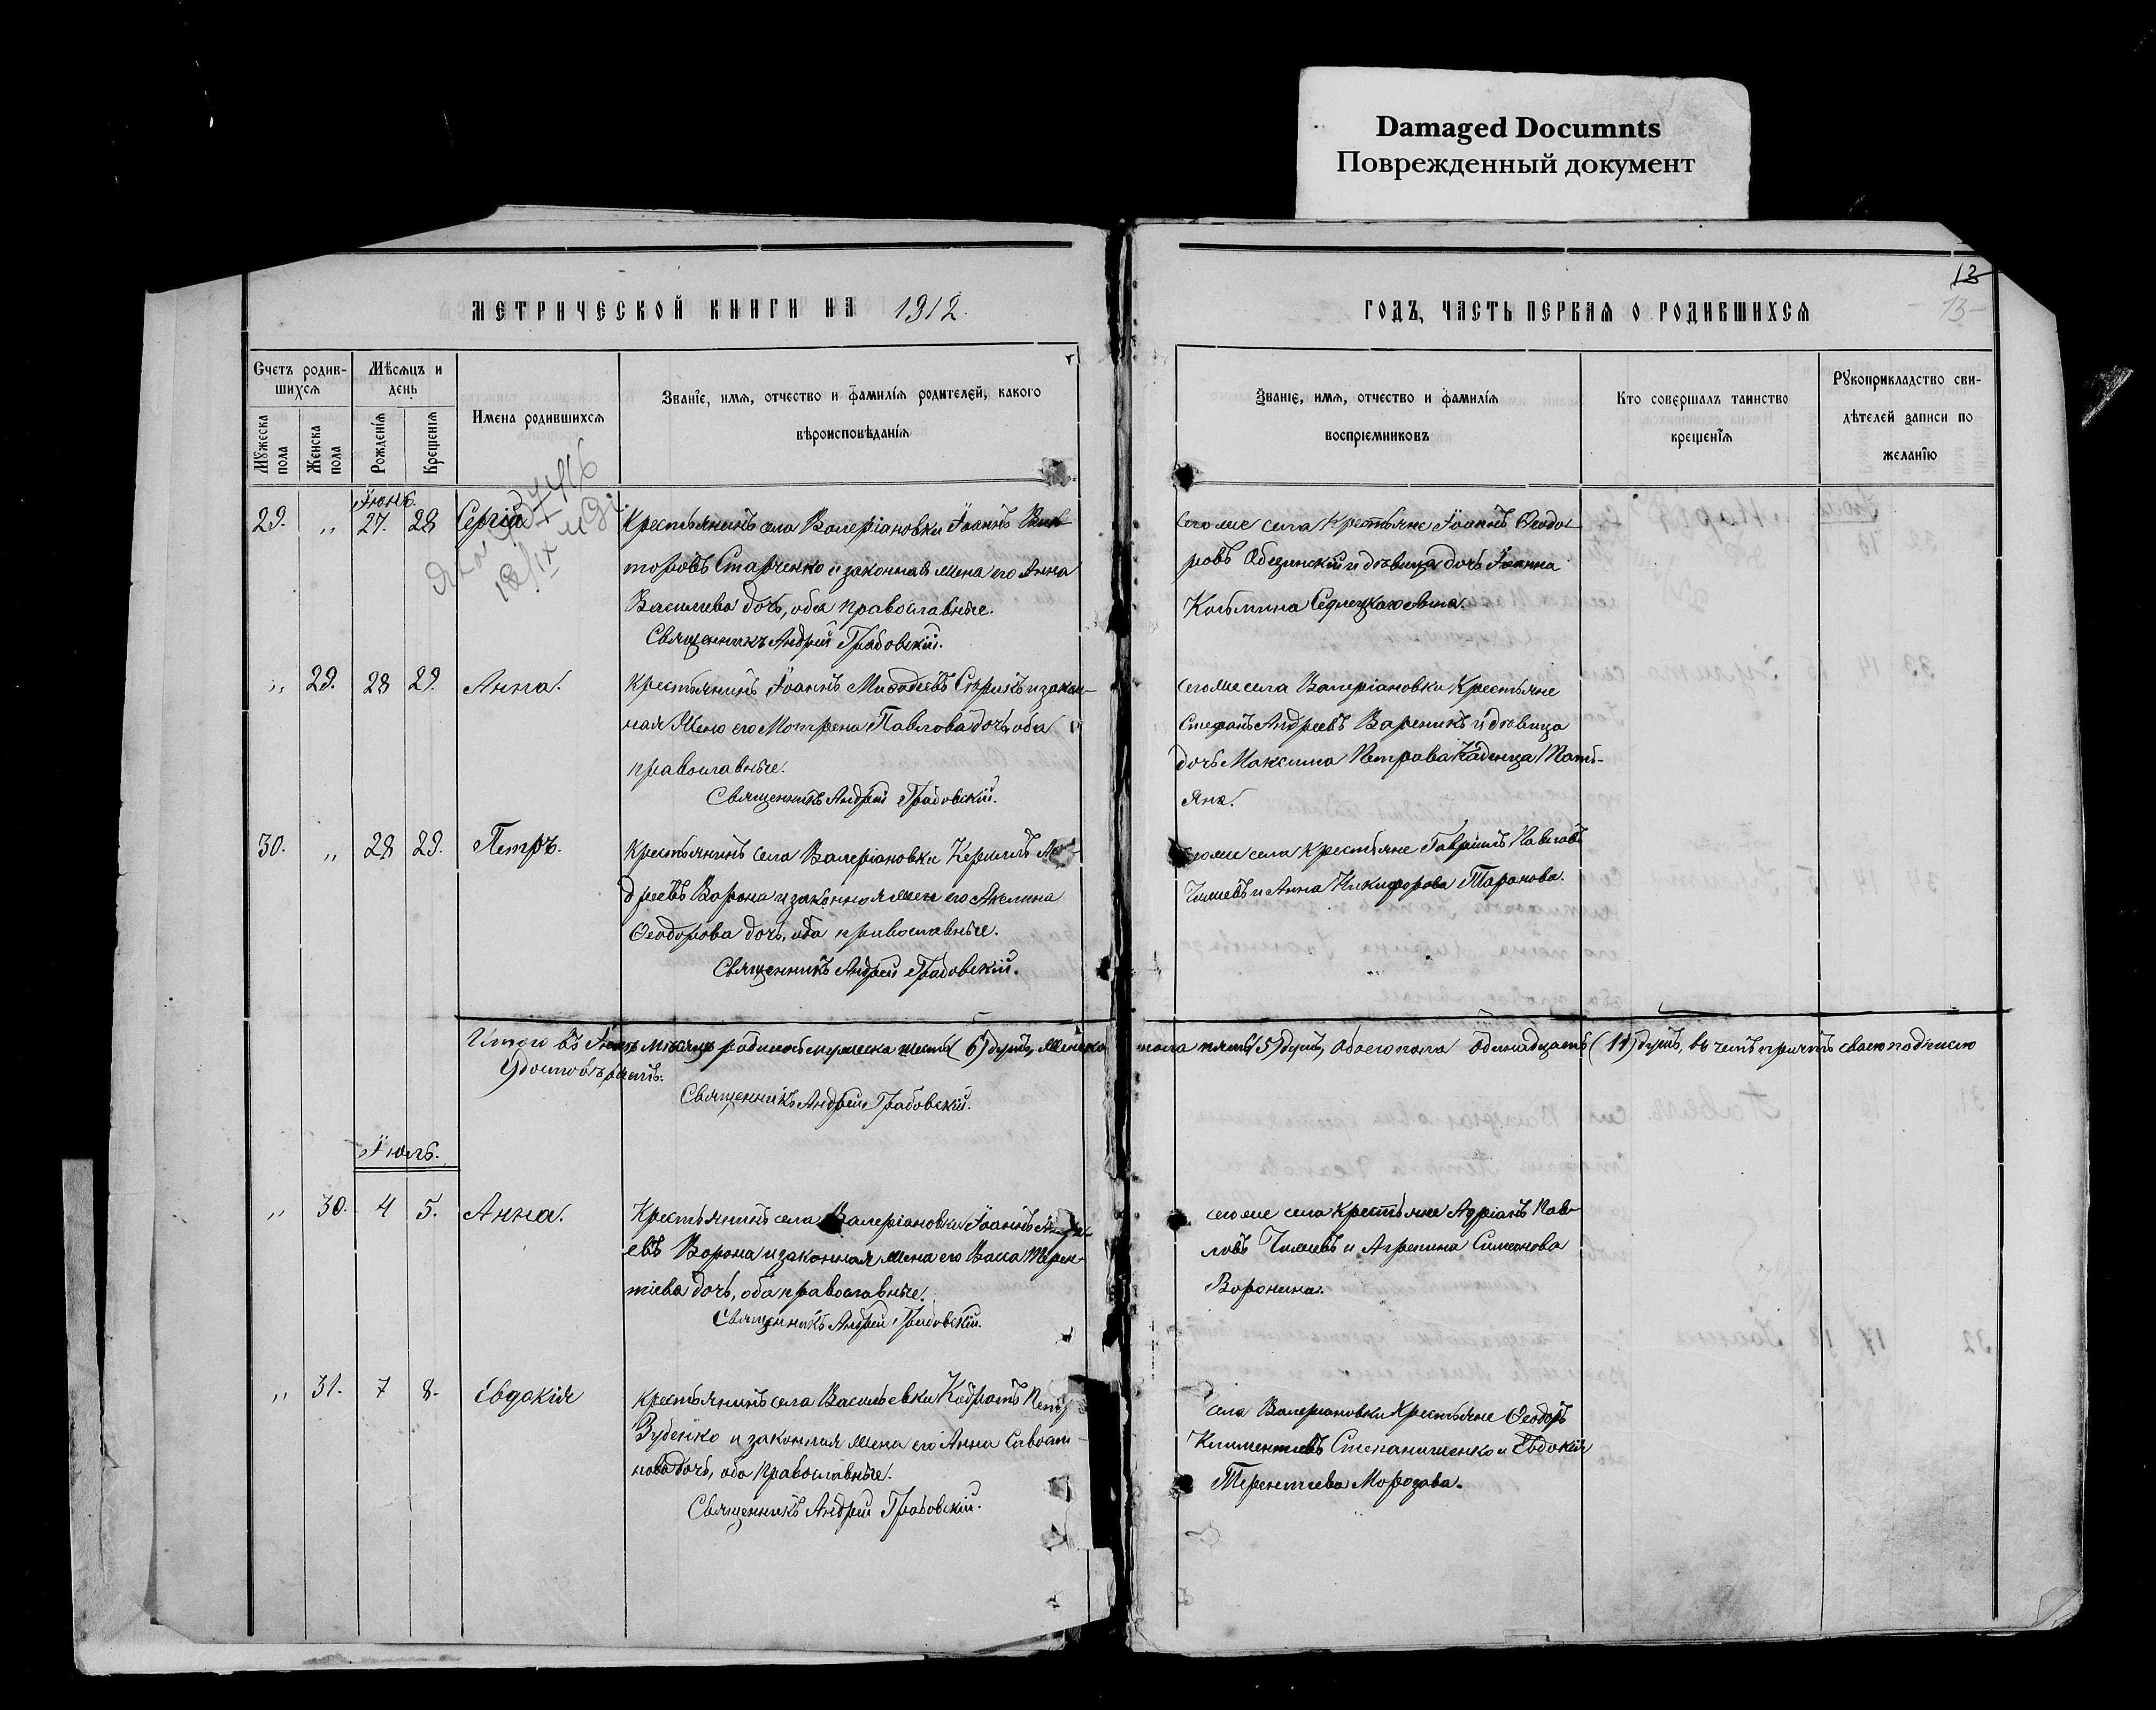 Damaged Documnts
Поврежденный документ
МЕТРИЧЕСКОЙ КНИГИ НА 1912.
ГОДЪ, ЧАСТЬ ПЕРВАЯ О РОДИВШИХСЯ
13
13-
Счетъ родив-
шихся
Мужеска
пола
Женска
пола
Мѣсяцъ и
день
Рожденія
Крещенія
Имена родившихся
Званіе, имя, отчество и фамилія родителей, какого
вѣроисповѣданія
Званіе, имя, отчество и фамилія
воспріемниковъ
Кто совершалъ таинство
крещенія
Рукоприкладство сви-
дѣтелей записи по
желанію
Іюнь.
29. „ 27. 28 Сергій
18/IX
Крестьянинъ села Валеріановки Іоаннъ Вик-
торовъ Старченко и законная жена его Анна
Васильева дочь, оба православные.
Священникъ Андрей Грабовскій.
сего же села крестьяне Іоаннъ Ѳеодо
ровъ и дѣвица дочь
Косьмина
„ 29. 28 29. Анна.
Крестьянинъ Іоаннъ и закон-
ная жена его Мотрена Павлова дочь, оба
православные.
Священникъ Андрей Грабовскій.
сего же села Валеріановки крестьяне
Стефанъ Андреевъ Вареникъ и дѣвица
дочь Максима Петрова Каденца Тать-
яна.
30. „ 28 29. Петръ.
Крестьянинъ села Валеріановки Кириллъ Ан-
дреевъ Ворона и законная жена его Акелина
Ѳеодорова дочь, оба православные.
Священникъ Андрей Грабовскій.
сего же села крестьяне Гавріилъ Павловъ
Чижевъ и Анна Никифорова Таранова.
Итого въ Іюнь мѣсяцѣ родилось мужеска шесть (6) душъ, женска пола пять (5) душъ, обоего пола одинадцать (11) душъ, въ чемъ причтъ своею подписью
удостовѣряетъ.
Священникъ Андрей Грабовскій.
Іюль.
„ 30. 4 5. Анна.
Крестьянинъ села Валеріановки Іоаннъ Андре-
евъ Ворона и законная жена его Васса Терен-
тіева дочь, оба православные.
Священникъ Андрей Грабовскій.
сего же села крестьяне Адріанъ Пав-
ловъ Чижевъ и Агрепина Симеонова
Воронина.
„ 31. 7 8. Евдокія
Крестьянинъ села Васильевки Кодратъ
Зубенко и законная жена его Анна
нова дочь, оба православные.
Священникъ Андрей Грабовскій.
села Валеріановки крестьяне Ѳеодоръ
Климентіевъ Степанищенко и Евдокія
Терентіева Морозова.